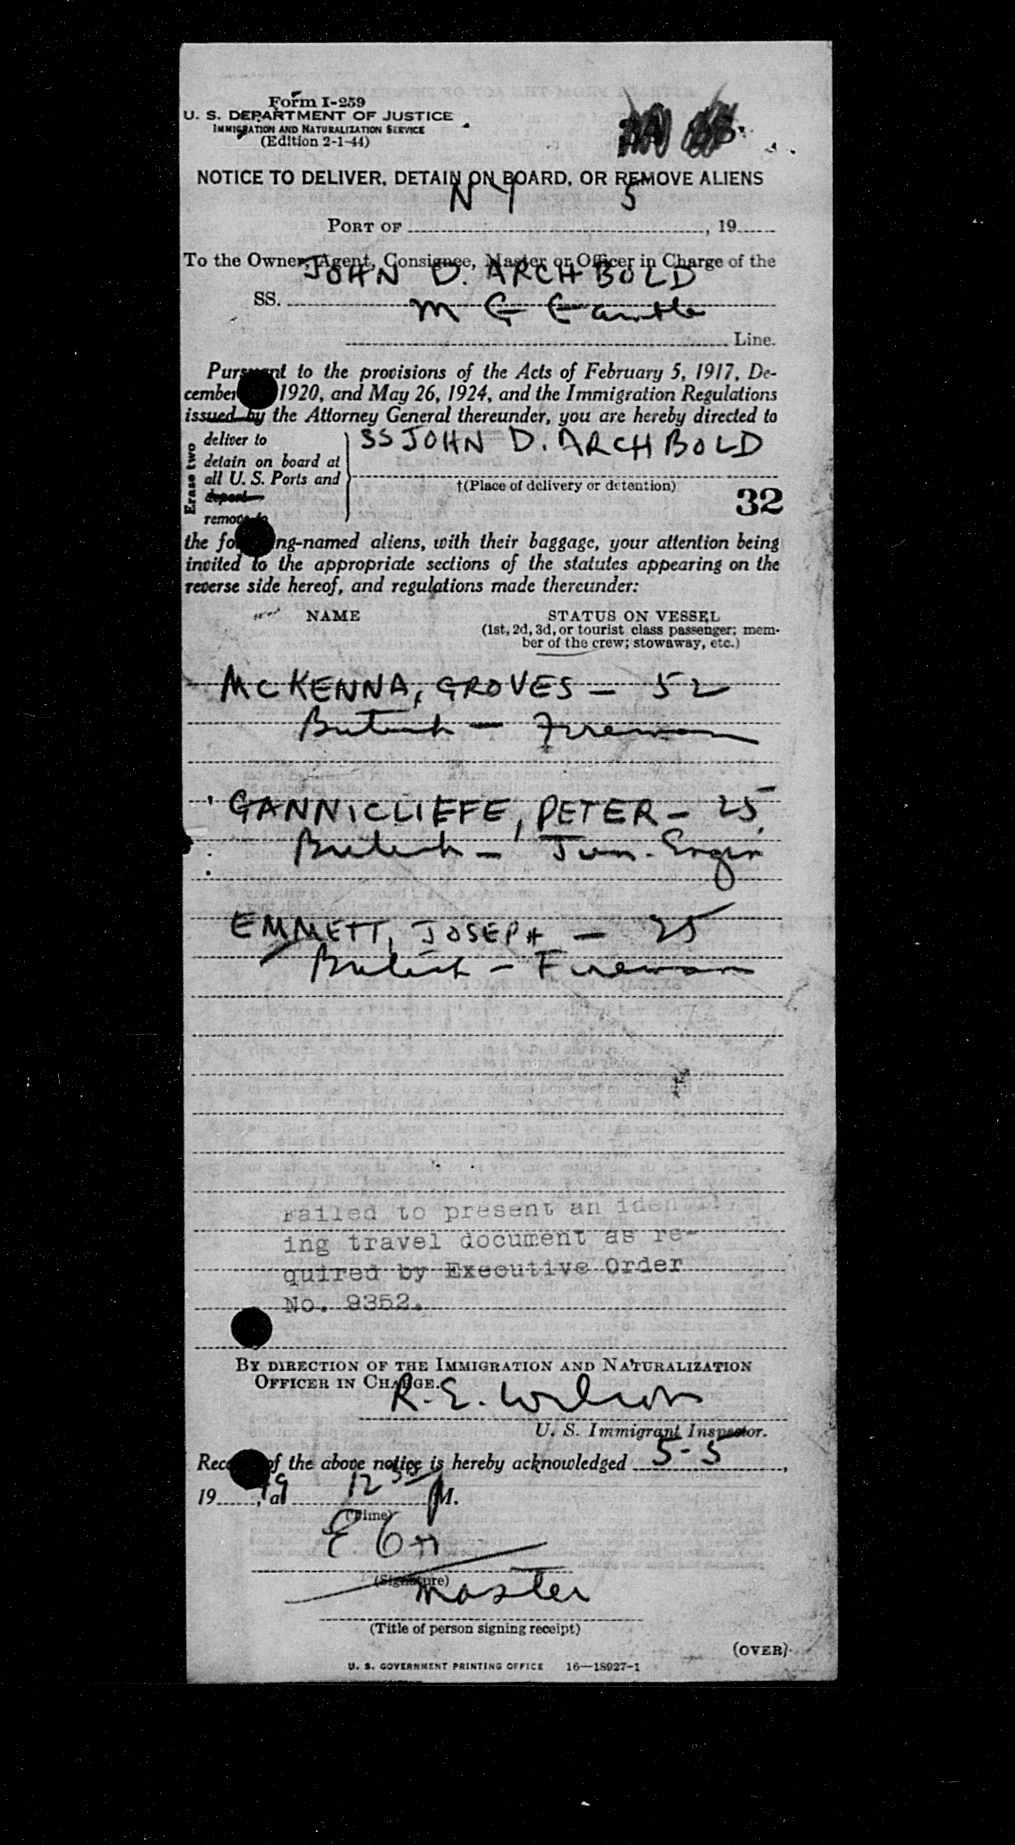 Form I-259
U. S. DEPARTMENT OF JUSTICE
IMMIGRATION AND NATURALIZATION SERVICE
(Edition 2-1-44)
NOTICE TO DELIVER, DETAIN ON BOARD, OR REMOVE ALIENS
N Y 5
PORT OF , 19
To the Owner, Agent, Consignee, Master or Officer in Charge of the
JOHN D. ARCHBOLD
SS.
Line.
Pursuant to the provisions of the Acts of February 5, 1917, De-
cember 1920, and May 26, 1924, and the Immigration Regulations
issued by the Attorney General thereunder, you are hereby directed to
Erase two
deliver to
detain on board at
all U. S. Ports and
deport
remove to
SS JOHN D. ARCHBOLD
†(Place of delivery or detention)
32
the following-named aliens, with their baggage, your attention being
invited to the appropriate sections of the statutes appearing on the
reverse side hereof, and regulations made thereunder:
NAME STATUS ON VESSEL
(1st, 2d, 3d, or tourist class passenger; mem-
ber of the crew; stowaway, etc.)
MCKENNA, GROVES - 52
British - Fireman
GANNICLIFFE, PETER - 25
British - Jun. Engin
EMMETT, JOSEPH - 25
British - Fireman
Failed to present an
ing travel document as re-
quired by Executive Order
No. 9352.
BY DIRECTION OF THE IMMIGRATION AND NATURALIZATION
OFFICER IN CHARGE.
R. E. Wilson
U. S. Immigrant Inspector.
Receipt of the above notice is hereby acknowledged 5-5,
19 , at 12 35 P M.
(Time)
(Signature)
Master
(Title of person signing receipt)
(OVER)
U. S. GOVERNMENT PRINTING OFFICE 16—18927-1